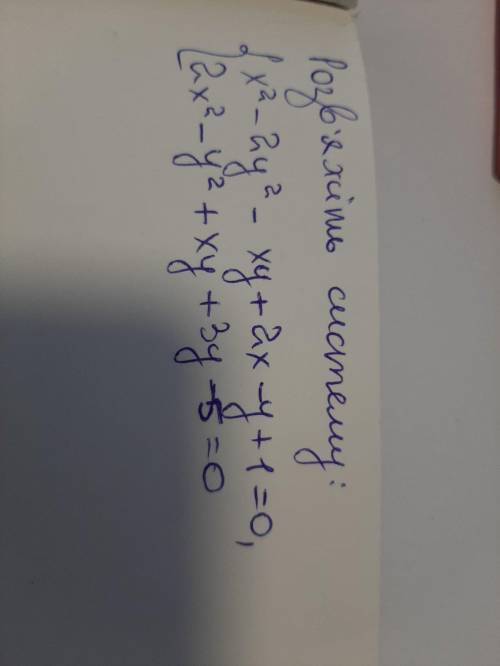 Розв'яжіть систему:
{ x² - 2y² - xy + 2x - y + 1 = 0,
2x² - y² + xy + 3y - 5 = 0